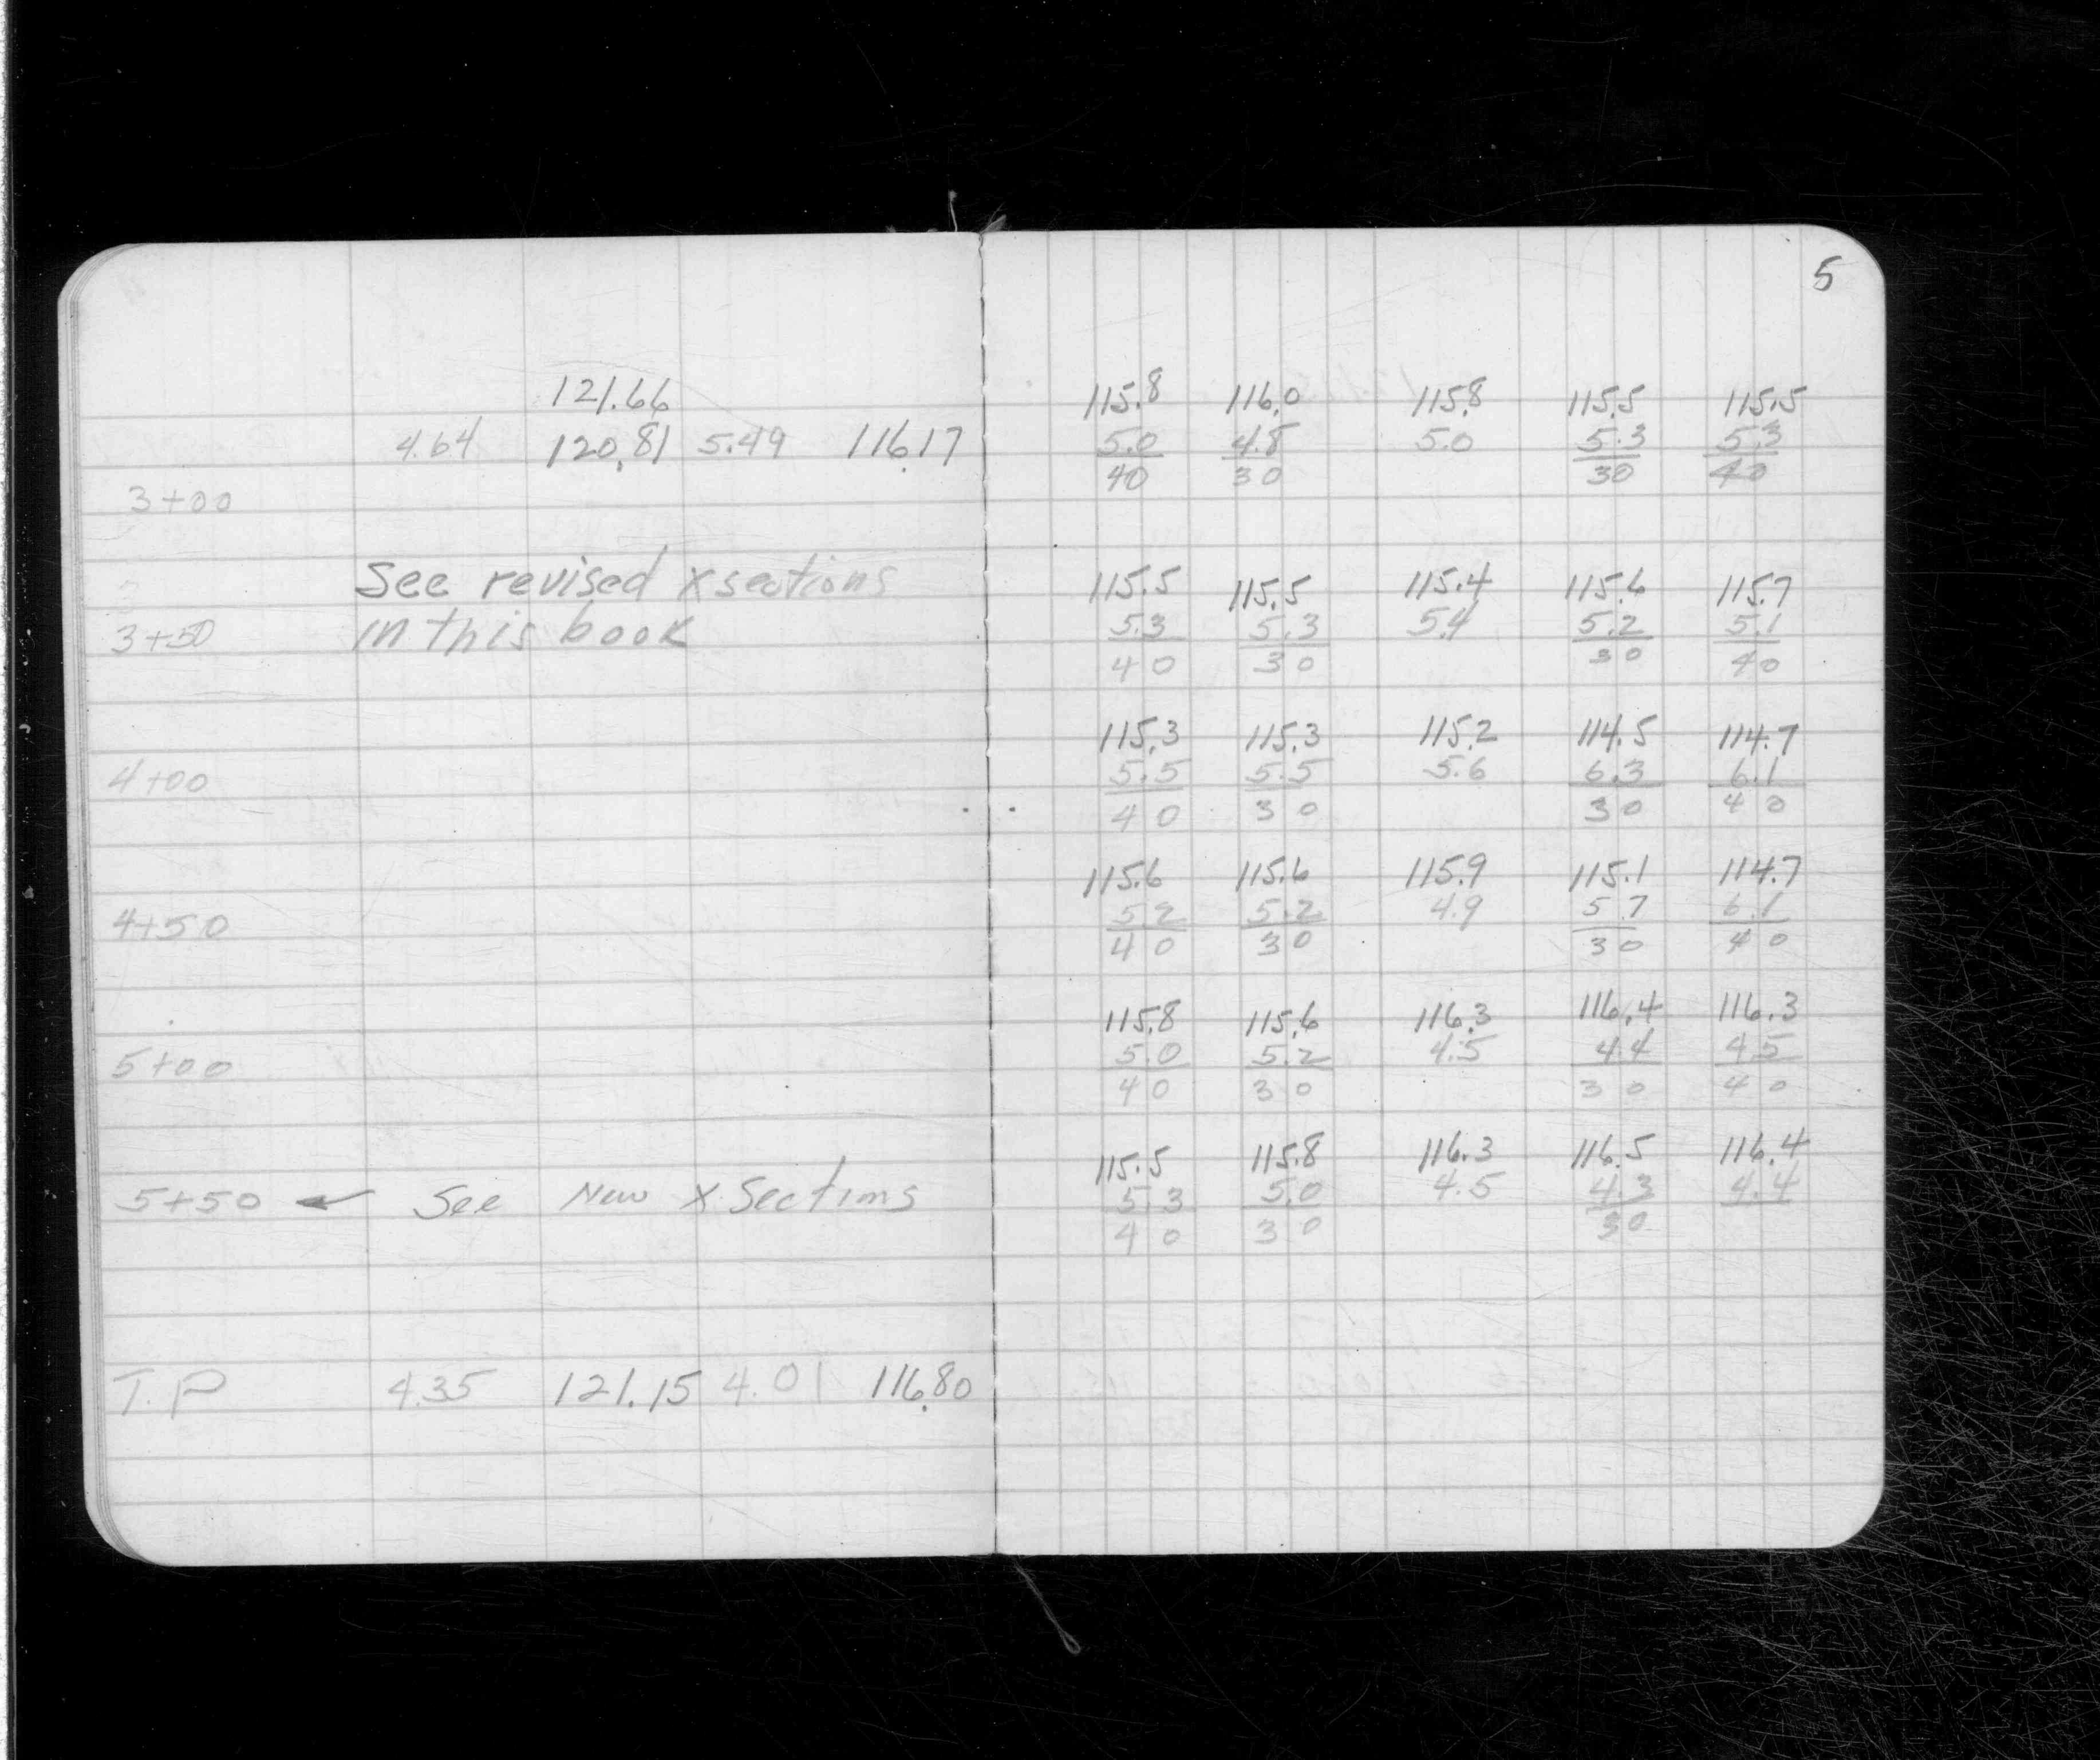 5
121.66
4.64 120.81 5.49 116.17
3+00
See revised x sections
3+50 in this book
4+00
4+50
5+00
5+50 ← See New X Sections
T.P 4.35 121.15 4.01 116.80
115.8 116.0 115.8 115.5 115.5
5.0 4.8 5.0 5.3 5.3
40 30 30 40
115.5 115.5 115.4 115.6 115.7
5.3 5.3 5.4 5.2 5.1
40 30 30 40
115.3 115.3 115.2 114.5 114.7
5.5 5.5 5.6 6.3 6.1
40 30 30 40
115.6 115.6 115.9 115.1 114.7
5.2 5.2 4.9 5.7 6.1
40 30 30 40
115.8 115.6 116.3 116.4 116.3
5.0 5.2 4.5 4.4 4.5
40 30 30 40
115.5 115.8 116.3 116.5 116.4
5.3 5.0 4.5 4.3 4.4
40 30 30